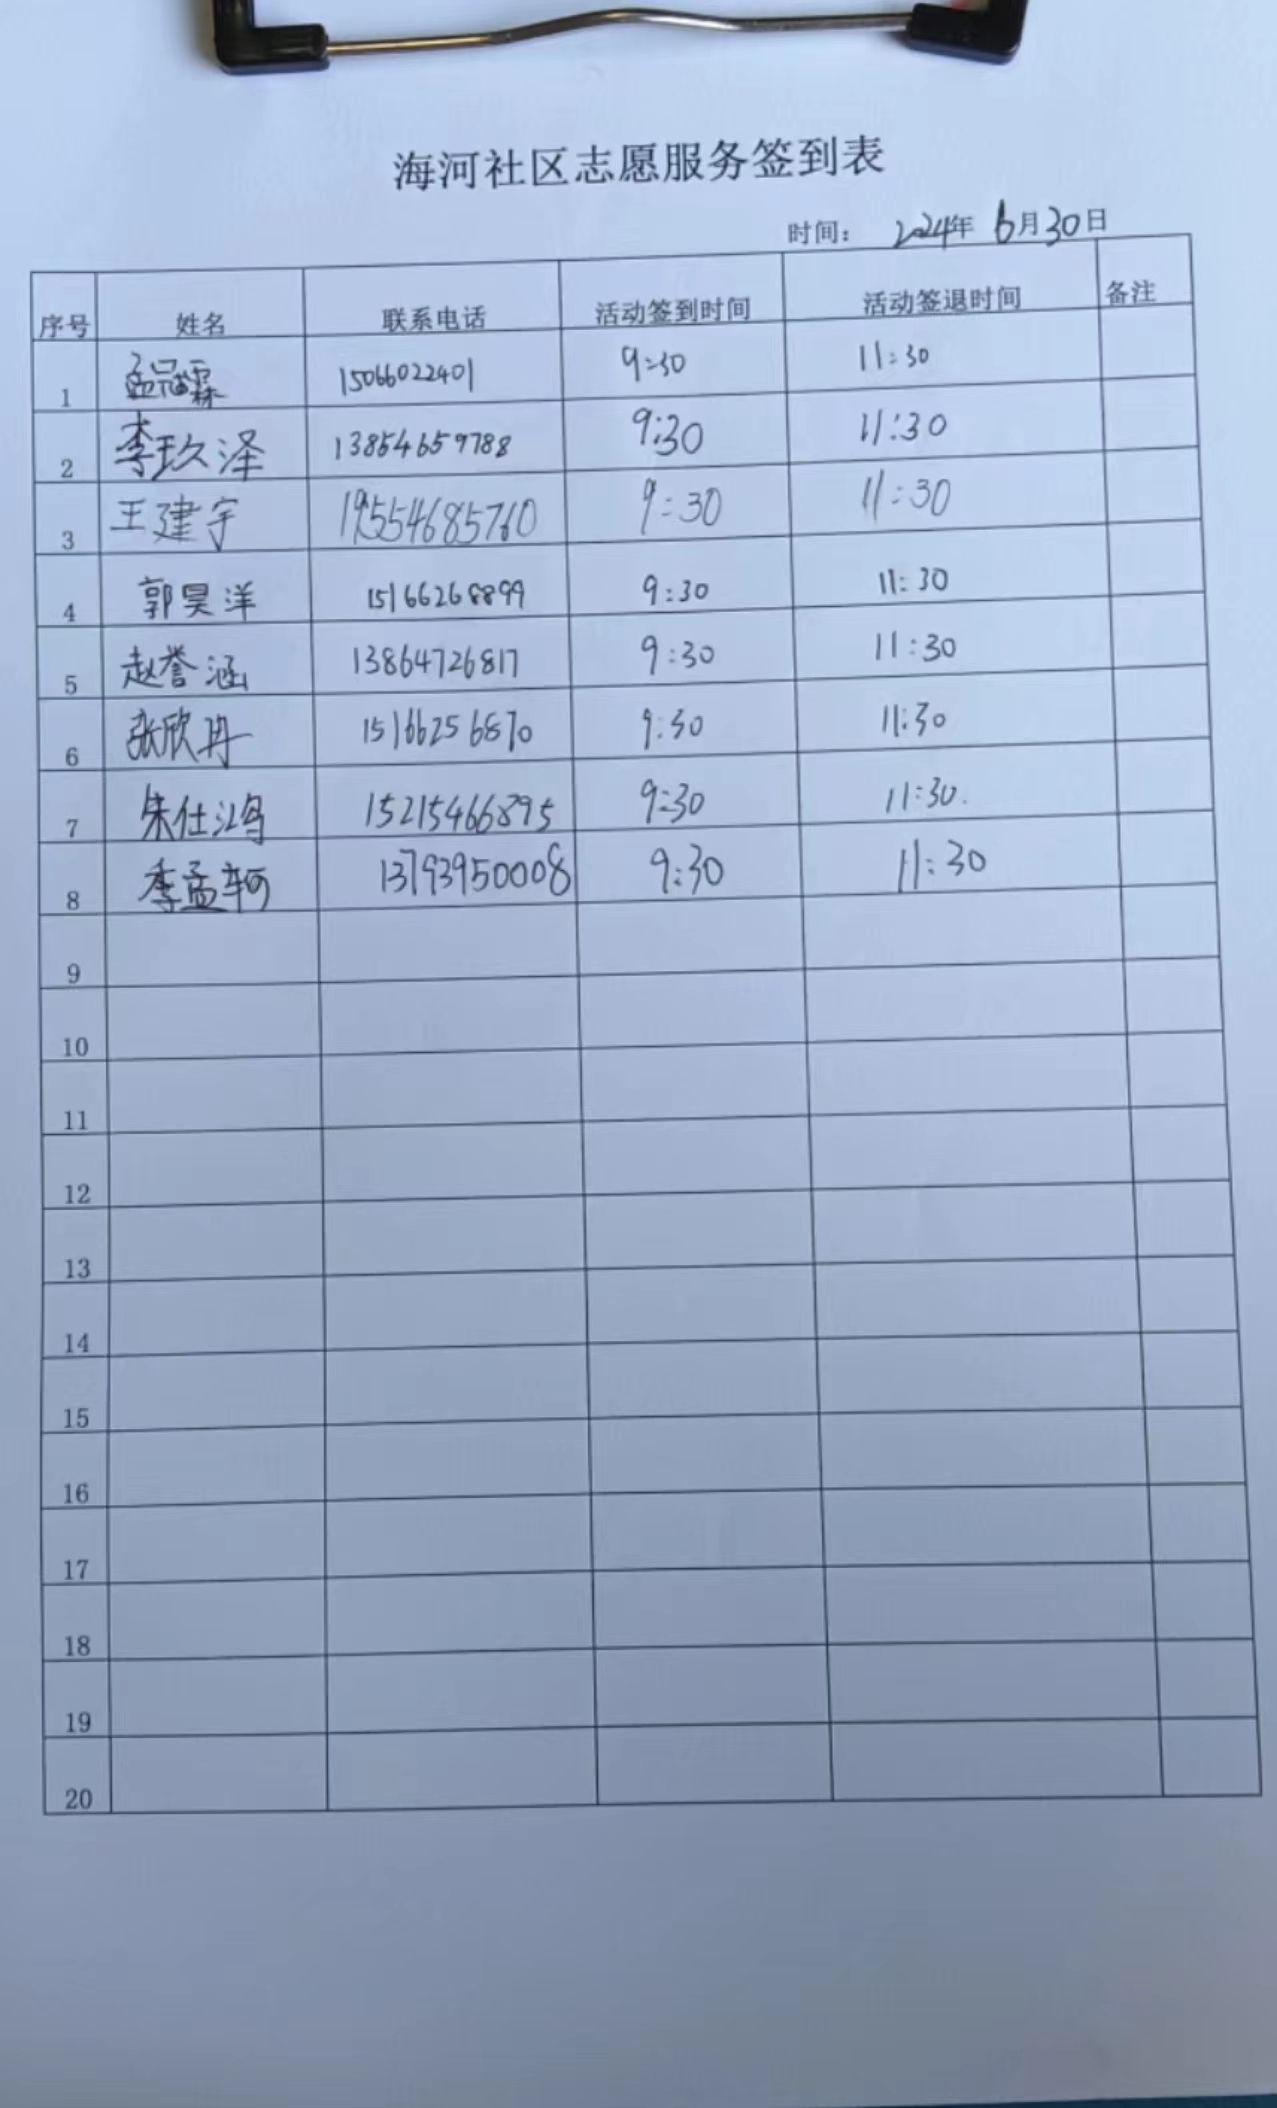 海河社区志愿服务签到表
时间： 2024年 6月30日
序号 姓名 联系电话 活动签到时间 活动签退时间 备注
1 孟冠霖 15066022401 9:30 11:30
2 李玖泽 13854659788 9:30 11:30
3 王建宇 19554685760 9:30 11:30
4 郭昊洋 15166268899 9:30 11:30
5 赵誉涵 13864726817 9:30 11:30
6 张欣冉 15166256870 9:30 11:30
7 朱仕鸿 15215466895 9:30 11:30.
8 季孟轲 13793950008 9:30 11:30
9
10
11
12
13
14
15
16
17
18
19
20